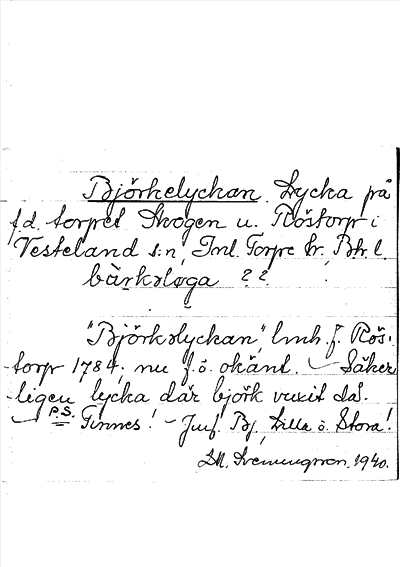 Björkelyckan. Lycka på
f.d. torpet Skogen u. Röstorp i
Vesteland s:n, Inl. Torpe hr, Bh. l.
bärkəløga ? ?
"Björkolyckan", lmh. f. Rös-
torp 1784; nu f. ö. okänt. – Säker
ligen lycka där björk vuxit da.
– P.S. Finnes! – Jmf. Bj. Lilla o. Stora!
Sveningsson. 1940.